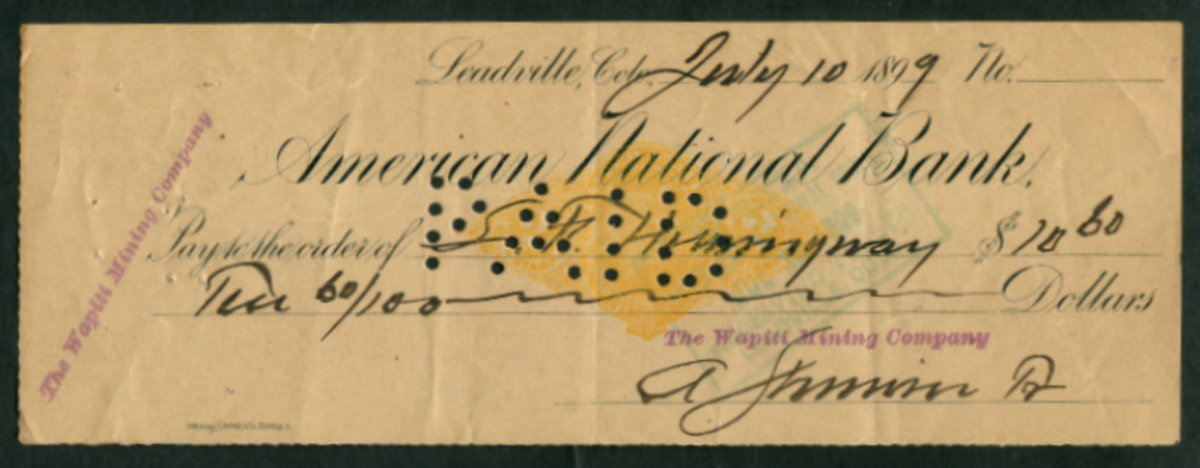 Leadville, Colo. July 10 1899 No.
American National Bank.
Pay to the order of S. H. Hemingway $10 60
Ten 60/100 Dollars
The Wapiti Mining Company
The Wapiti Mining Company
A
PAID